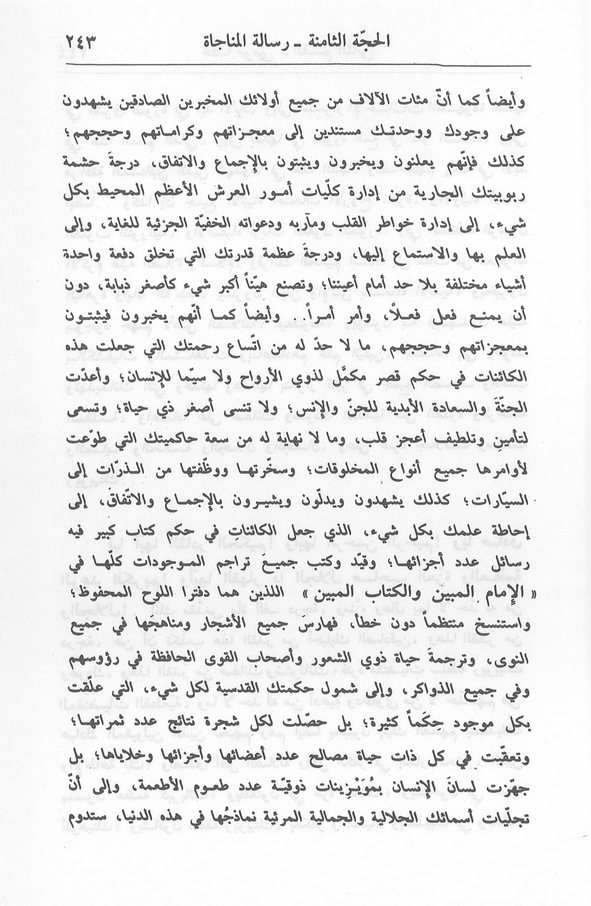 الحجّة الثامنة - رسالة المناجاة ٢٤٣
وأيضاً كما أنّ مئات الآلاف من جميع أولائك المخبرين الصادقين يشهدون
على وجودك ووحدتك مستندين إلى معجزاتهم وكراماتهم وحججهم؛
كذلك فإنّهم يعلنون ويخبرون ويثبتون بالإجماع والاتفاق، درجةَ حشمة
ربوبيتك الجارية من إدارة كلّيات أمور العرش الأعظم المحيط بكل
شيء، إلى إدارة خواطر القلب ومآربه ودعواته الخفيّة الجزئية للغاية، وإلى
العلم بها والاستماع إليها، ودرجةَ عظمة قدرتك التي تخلق دفعة واحدة
أشياء مختلفة بلا حد أمام أعيننا؛ وتصنع هيّناً أكبر شيء كأصغر ذبابة، دون
أن يمنع فعل فعلاً، وأمر أمراً.. وأيضاً كما أنّهم يخبرون فيثبتون
بمعجزاتهم وحججهم، ما لا حدّ له من اتّساع رحمتك التي جعلت هذه
الكائنات في حكم قصر مكمَّل لذوي الأرواح ولا سيّما للإنسان؛ وأعدّت
الجنّةَ والسعادة الأبدية للجنّ والإنس؛ ولا تنسى أصغر ذي حياة؛ وتسعى
لتأمينِ وتلطيف أعجز قلب، وما لا نهاية له من سعة حاكميتك التي طوّعت
لأوامرها جميع أنواع المخلوقات؛ وسخّرتها ووظّفتها من الذرّات إلى
السيّارات؛ كذلك يشهدون ويدلّون ويشيرون بالإجماع والاتّفاق، إلى
إحاطة علمك بكل شيء، الذي جعل الكائناتِ في حكم كتاب كبير فيه
رسائل عدد أجزائها؛ وقيّد وكتب جميعَ تراجم الموجودات كلّها في
« الإمام المبين والكتاب المبين » اللذين هما دفترا اللوح المحفوظ؛
واستنسخ منتظماً دون خطأ، فهارسَ جميع الأشجار ومناهجَها في جميع
النوى، وترجمةَ حياة ذوي الشعور وأصحاب القوى الحافظة في رؤوسهم
وفي جميع الذواكر، وإلى شمول حكمتك القدسية لكل شيء، التي علّقت
بكل موجود حِكَماً كثيرة؛ بل حصّلت لكل شجرة نتائج عدد ثمراتها؛
وتعقّبت في كل ذات حياة مصالح عدد أعضائها وأجزائها وخلاياها؛ بل
جهّزت لسانَ الإنسان بمُوَيْزِينات ذوقيّة عدد طعوم الأطعمة، وإلى أنّ
تجلّيات أسمائك الجلالية والجمالية المرئية نماذجُها في هذه الدنيا، ستدوم